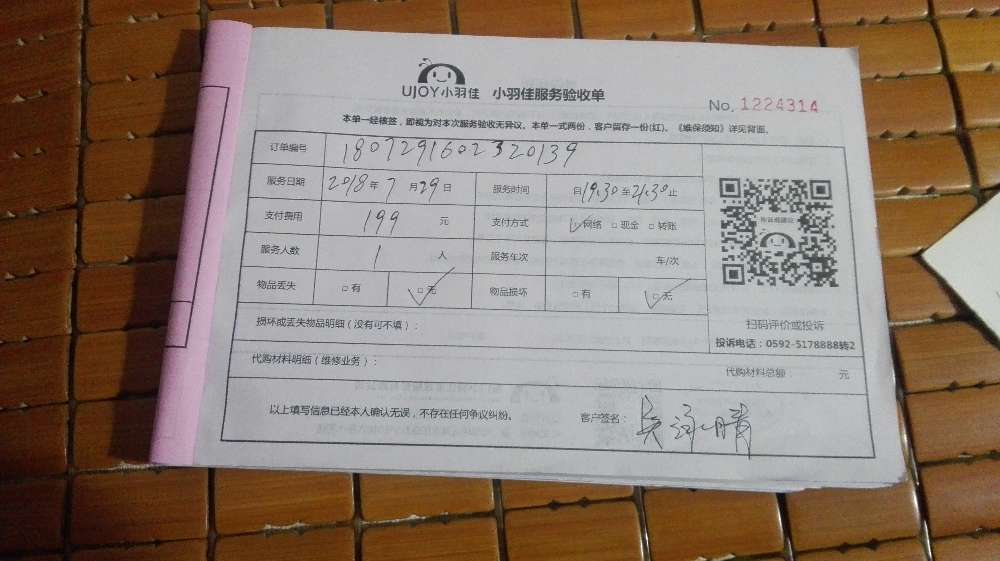 UJOY小羽佳 小羽佳服务验收单
No. 1224314
本单一经核签，即视为对本次服务验收无异议。本单一式两份，客户留存一份(红)。《维保须知》详见背面。
订单编号 1807291602320139
服务日期 2018年7月29日 服务时间 自19:30至21:30止
支付费用 199 元 支付方式 ☑网络 □现金 □转账
服务人数 1 人 服务车次 车/次
物品丢失 □有 ☑无 物品损坏 □有 ☑无
扫码评价或投诉
投诉电话：0592-5178888转2
损坏或丢失物品明细（没有可不填）：
代购材料明细（维修业务）： 代购材料总额： 元
以上填写信息已经本人确认无误，不存在任何争议纠纷。 客户签名：